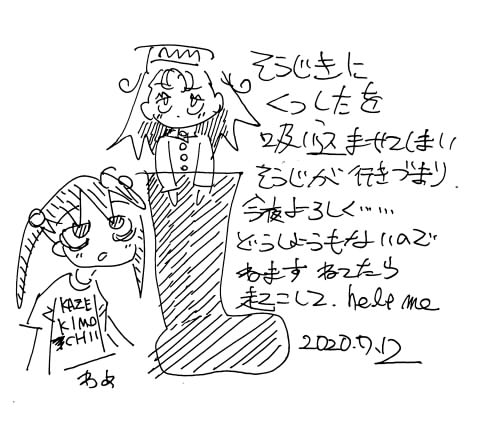 そうじきに
くつしたを
吸いこませてしまい
そうじが行きづまり.
今夜よろしく……
どうしようもないので
ねます ねてたら
起こして. help me
2020.7.12
KAZE
KIMO
CHII
わぁ